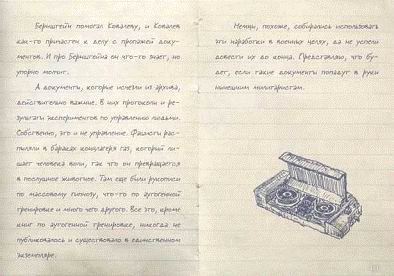 Бернштейн помогал Ковалеву, и Ковалев
как-то причастен к делу с пропажей доку-
ментов. И про Бернштейна он что-то знает, но
упорно молчит.
А документы, которые исчезли из архива,
действительно важние. В них протоколи и ре-
зультати экспериментов по управлению людьми.
Собственно, это и не управление. Фашисти рас-
пиляли в бараках концлагеря газ, который ли-
шает человека воли, так что он превращается
в послушное животное. Там еще били рукописи
по массовому гипнозу, что-то по аутогенной
тренировке и много чего другого. Все это, кроме
книг по аутогенной тренировке, никогда не
публиковалось и существовало в единственном
экземпляре.
Немци, похоже, собирались использовать
эти наработки в военних целях, да не успели
довести их до конца. Представляю, что бу-
дет, если такие документы попадут в руки
нинешним милитаристам.